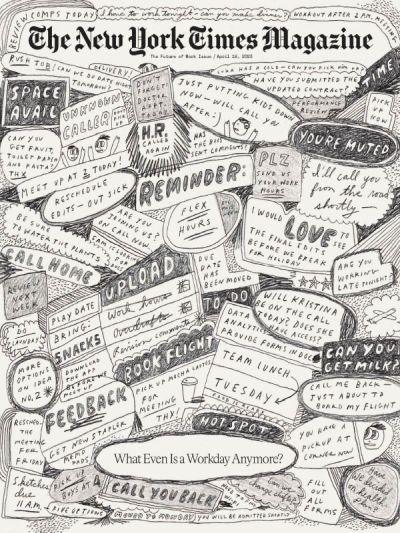 REVIEW COMPS TODAY
I have to work tonight – can you make dinner?
WORKOUT AFTER 2 P.M. MEETING
The New York Times Magazine
The Future of Work Issue / April
RUSH JOB
DELIVERY!
CAN WE DO DATE NIGHT
TOMORROW?
HAVE YOU SUBMITTED THE
UPDATED CONTRACT?
PERFORMANCE
REVIEW
TIME
SPACE
AVAIL
UNKNOWN
CALLER
H.R.
CALLED
AGAIN
JUST PUTTING KIDS DOWN
NOW – WILL CALL YOU
AFTER :)
PICK
UP
NOW!
YOU'RE MUTED
CAN YOU
GET FRUIT,
TOILET PAPER
AND PASTA?
THX
HAS
THE BOSS
SENT COMMENTS?
PLZ
SEND US
YOUR WORK
HOURS
I'll call
you
from the road
shortly –
MEET UP AT 2 TODAY!
REMINDER:
RESCHEDULE
EDITS – OUT SICK
FLEX
HOURS
I WOULD
LOVE TO
SEE
THE FINAL EDIT
BEFORE WE BREAK
FOR HOLIDAY
BE SURE
TO WATER THE PLANTS
ARE YOU
JOINING LATE?
ON CALL NOW.
CALL HOME
DUE
DATE
HAS
BEEN MOVED
ARE YOU
WORKING
LATE TONIGHT?
UPLOAD
Work hours
REVIEW
NEXT
WEEK
TO DO
PLAY DATE
BRING
SNACKS
Revision comments
WILL KRISTINA
BE ON THE CALL
TODAY? DOES SHE
HAVE ACCESS?
DATA
ANALYTICS
PROVIDE FORMS IN DOC
DO
LAUNDRY
BOOK FLIGHT
CAN YOU
GET MILK?
MORE
OPTIONS
ON IDEA
NO. 2
DOWNLOAD
THE APP
BEFORE WE
MEET UP
PICK UP MOCHA LATTES
FOR
MEETING
THX!
TEAM LUNCH
TUESDAY
CALL ME BACK –
JUST ABOUT TO
BOARD MY FLIGHT
FEEDBACK
HOT SPOT
RESCHED.
THE
MEETING
FOR
FRIDAY
GET NEW STAPLER
MEMO
PADS
What Even Is a Workday Anymore?
YOU HAVE A
PICKUP AT
CORNER NOW
Sketches
due
11 A.M. – FIVE OPTIONS
PICK UP
BOYS AT 4
CALL YOU BACK
FILL
OUT
ALL
FORMS
Have
we decided
on a sales
plan?
MOVED TO MONDAY
YOU WILL BE ADMITTED SHORTLY